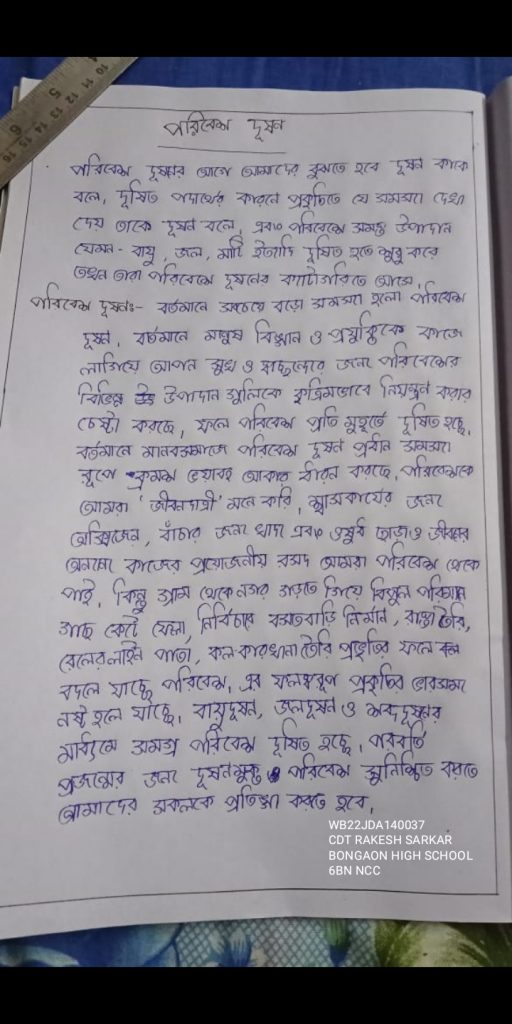 পরিবেশ দূষন
পরিবেশ দূষনর আগে আমাদের বুঝতে হবে দূষন কাকে
বলে, দূষিত পদার্থের কারনে প্রকৃতিতে যে সমস্যা দেখা
দেয় তাকে দূষন বলে, এবং পরিবেশে সমস্ত উপাদান
যেমন - বায়ু, জল, মাটি ইত্যাদি দূষিত হতে শুরু করে
তখন তারা পরিবেশে দূষনের ক্যাটাগরিতে আসে,
পরিবেশ দূষনঃ- বর্তমানে সবচেয়ে বড়ো সমস্যা হলো পরিবেশ
দূষন, বর্তমানে মানুষ বিজ্ঞান ও প্রযুক্তিকে কাজে
লাগিয়ে আপন সুখ ও স্বাচ্ছন্দের জন্য পরিবেশের
বিভিন্ন উপাদান গুলিকে কৃত্রিমভাবে নিয়ন্ত্রন করার
চেষ্টা করছে, ফলে পরিবেশ প্রতি মুহূর্তে দূষিত হচ্ছে,
বর্তমানে মানবসমাজে পরিবেশ দূষন প্রধান সমস্যা
রূপে ক্রমশ ভয়াবহ আকার ধারন করছে, পরিবেশকে
আমরা 'জীবনদাত্রী' মনে করি, শ্বাসকার্যের জন্য
অক্সিজেন, বাঁচার জন্য খাদ্য এবং ওষুধ ছাড়াও জীবনের
অন্যান্য কাজের প্রয়োজনীয় রসদ আমরা পরিবেশ থেকে
পাই, কিন্তু গ্রাম থেকে নগর গড়তে গিয়ে বিপুল পরিমান
গাছ কেটে ফেলা, নির্বিচারে বসতবাড়ি নির্মান, রাস্তা তৈরি,
রেলের লাইন পাতা, কল-কারখানা তৈরি প্রভৃতির ফলে
বদলে যাচ্ছে পরিবেশ, এর ফলস্বরূপ প্রকৃতির ভারসাম্য
নষ্ট হলে যাচ্ছে, বায়ুদূষন, জলদূষন ও শব্দদূষনের
মাধ্যমে সমগ্র পরিবেশ দূষিত হচ্ছে, পরবর্তি
প্রজন্মের জন্য দূষনমুক্ত পরিবেশ সুনিশ্চিত করতে
আমাদের সকলকে প্রতিজ্ঞা করতে হবে,
WB22JDA140037
CDT RAKESH SARKAR
BONGAON HIGH SCHOOL
6BN NCC